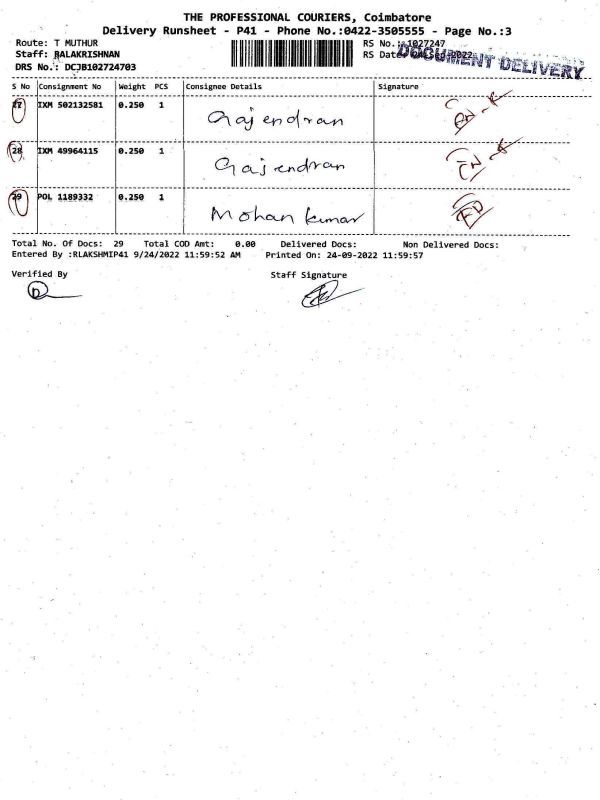 THE PROFESSIONAL COURIERS, Coimbatore
Delivery Runsheet - P41 - Phone No.:0422-3505555 - Page No.:3
Route: T MUTHUR
RS No.:1027247
Staff: BALAKRISHNAN
RS Date:
DOCUMENT DELIVERY
DRS No.: DCJB102724703
S No Consignment No Weight PCS Consignee Details Signature
27 IXM 502132581 0.250 1 Gajendran
28 IXM 49964115 0.250 1 Gajendran
29 POL 1189332 0.250 1 Mohan kumar
Total No. Of Docs: 29 Total COD Amt: 0.00 Delivered Docs: Non Delivered Docs:
Entered By :RLAKSHMIP41 9/24/2022 11:59:52 AM Printed On: 24-09-2022 11:59:57
Verified By Staff Signature